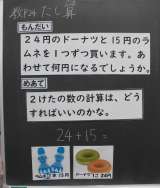 たし算
もんだい
24円のドーナツと15円のラ
ムネを1つずつ買います。あ
わせて何円になるでしょうか。
めあて
2けたの数の計算は、どう
すればいいのかな。
24+15=
15円
ドーナツ 1こ 24円